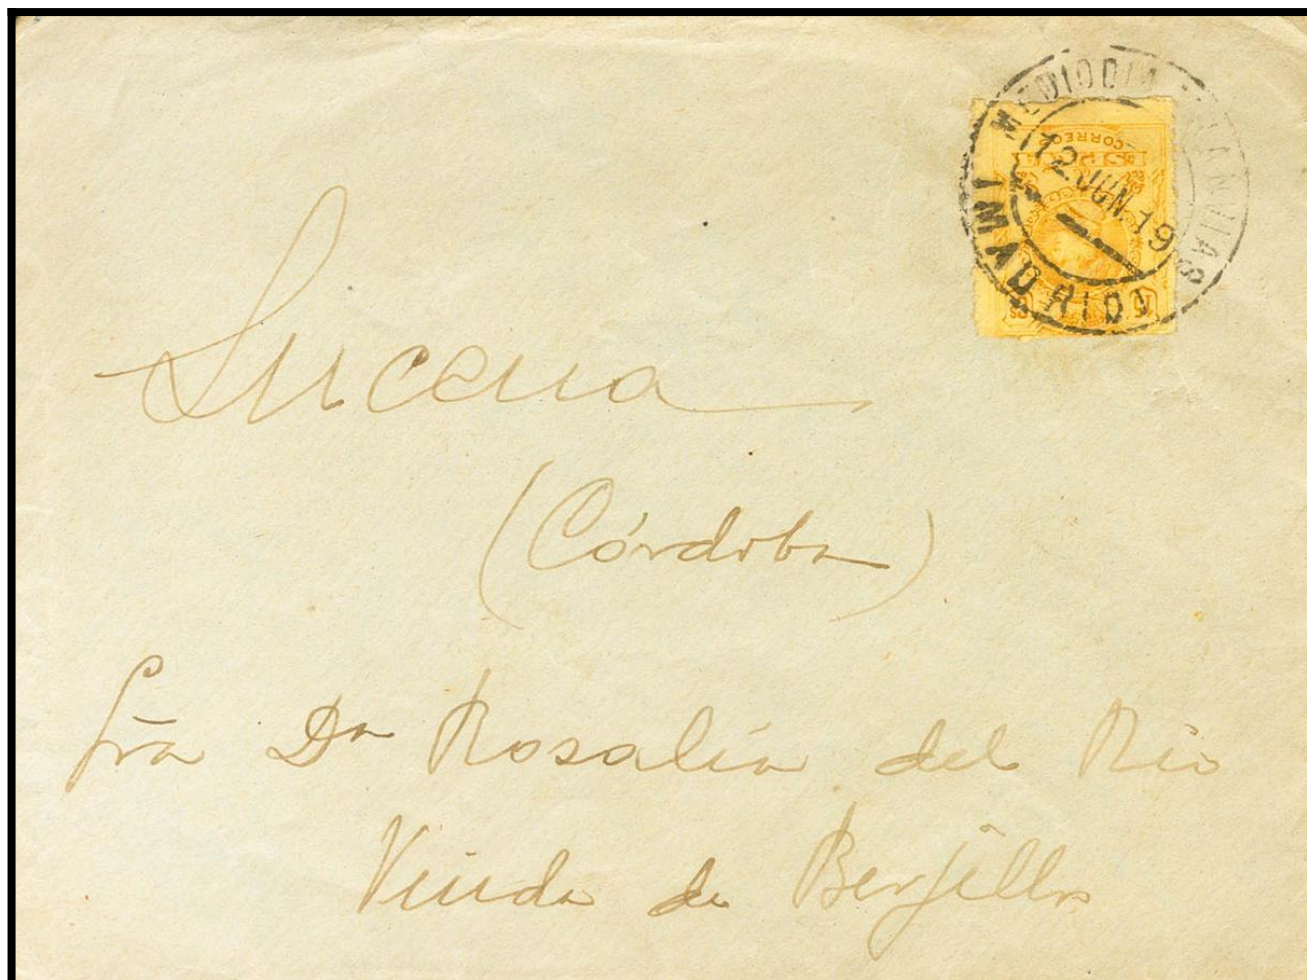 MEDIODIA
12 JUN 19
MADRID
CORREOS
15
Lucena
(Córdoba)
Sra Dª Rosalía del Río
Viuda de Berjillos